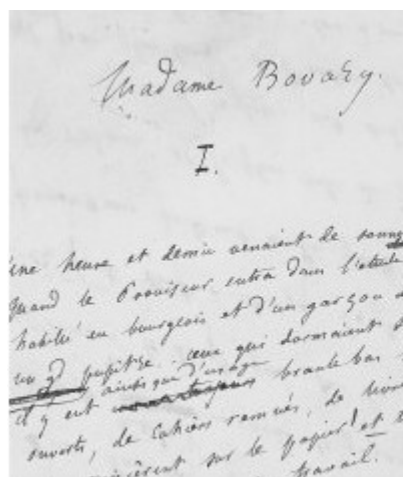 Madame Bovary.
I.
une heure et demie venaient de sonner
quand le Proviseur entra dans l'étude
habillé en bourgeois et d'un garçon
un gd pupitre. ceux qui dormaient
ainsi que d'usage
il y eut branlebas
ouverts, de cahiers remués, de
sur le papier! et
travail.